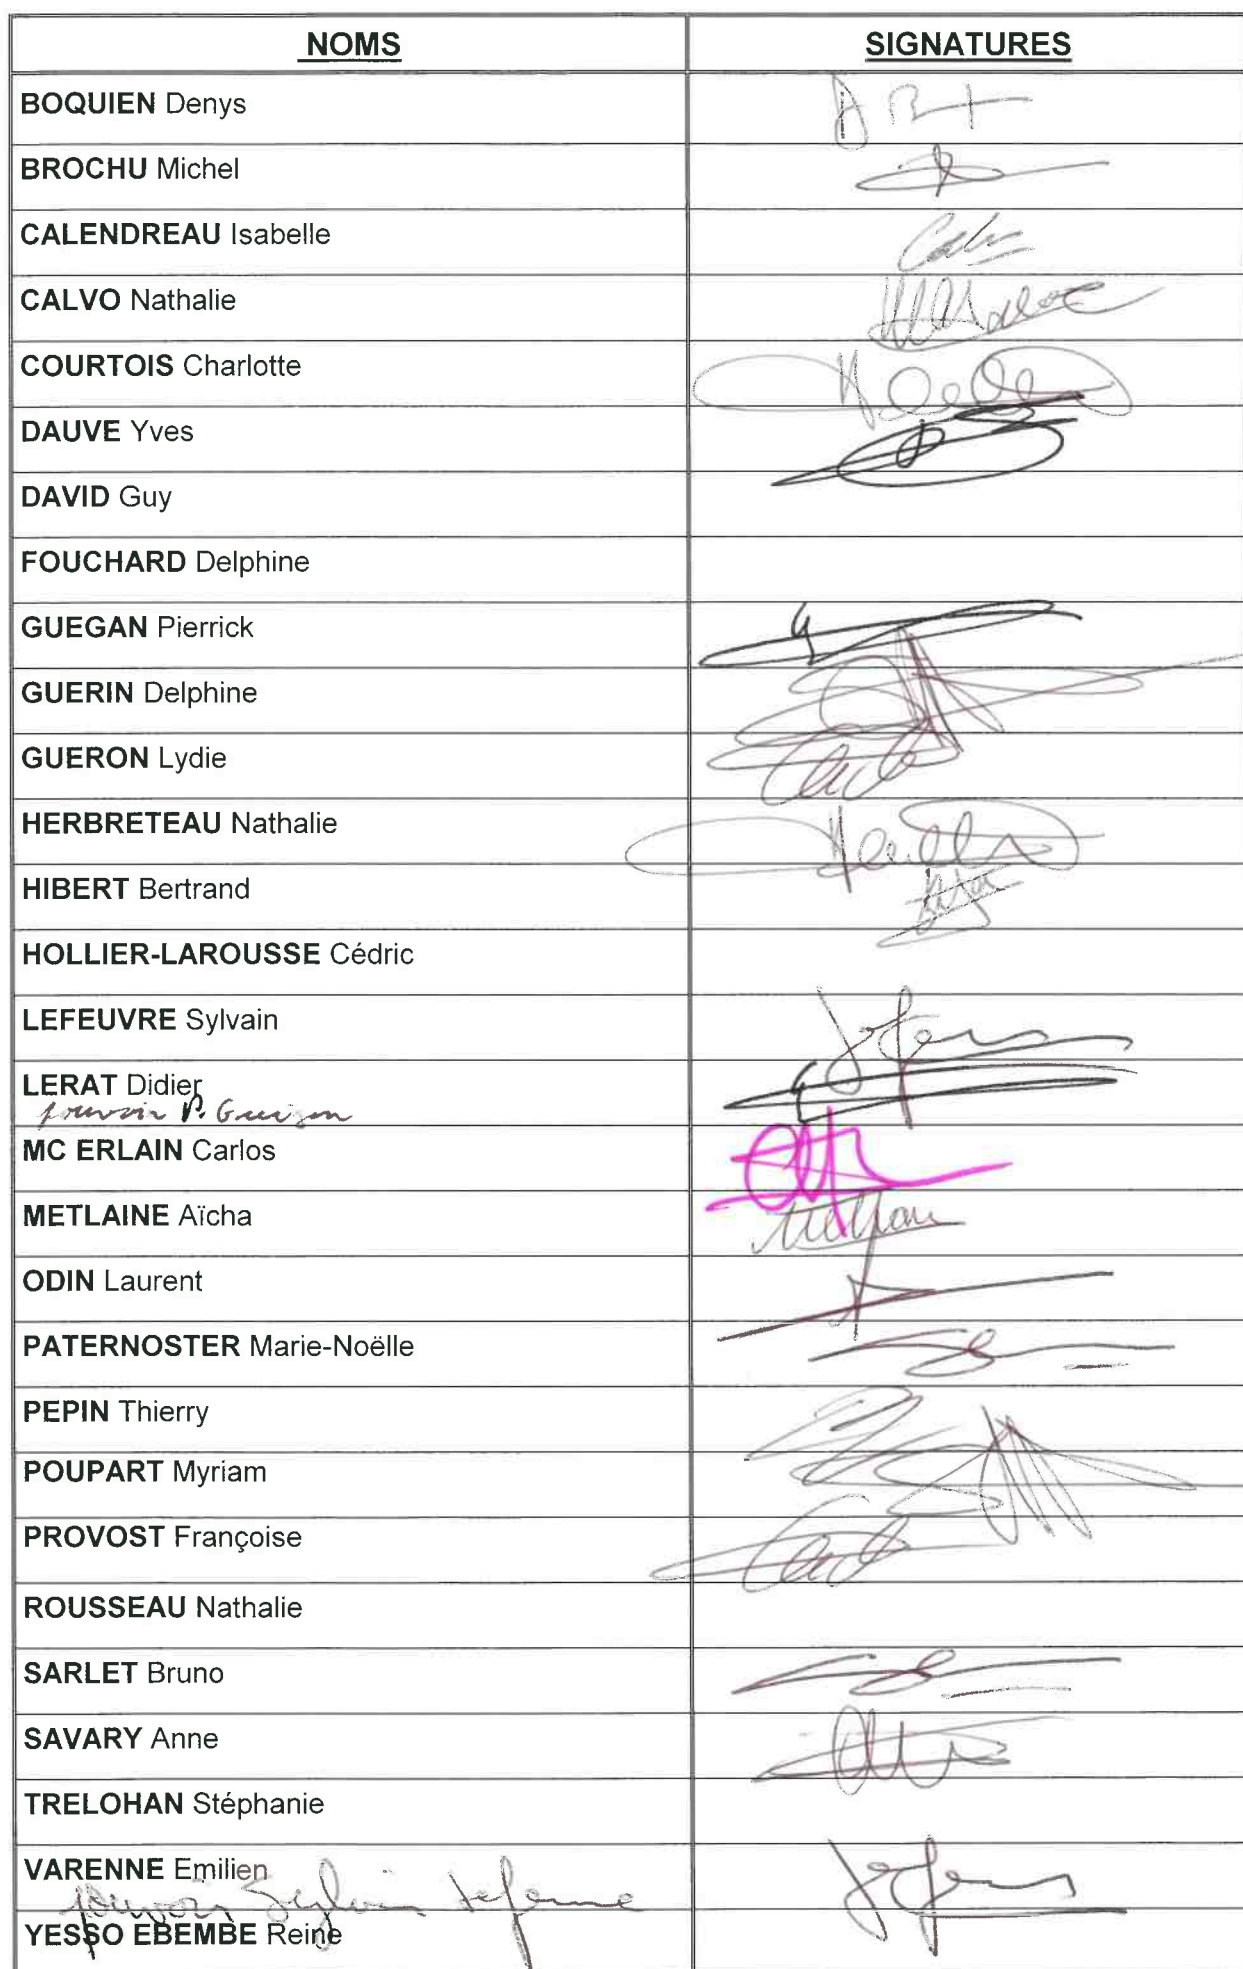 NOMS SIGNATURES
BOQUIEN Denys
BROCHU Michel
CALENDREAU Isabelle
CALVO Nathalie
COURTOIS Charlotte
DAUVE Yves
DAVID Guy
FOUCHARD Delphine
GUEGAN Pierrick
GUERIN Delphine
GUERON Lydie
HERBRETEAU Nathalie
HIBERT Bertrand
HOLLIER-LAROUSSE Cédric
LEFEUVRE Sylvain
LERAT Didier
pouvoir P. Guégan
MC ERLAIN Carlos
METLAINE Aïcha
ODIN Laurent
PATERNOSTER Marie-Noëlle
PEPIN Thierry
POUPART Myriam
PROVOST Françoise
ROUSSEAU Nathalie
SARLET Bruno
SAVARY Anne
TRELOHAN Stéphanie
VARENNE Emilien
pouvoir Sylvain Lefeuvre
YESSO EBEMBE Reine